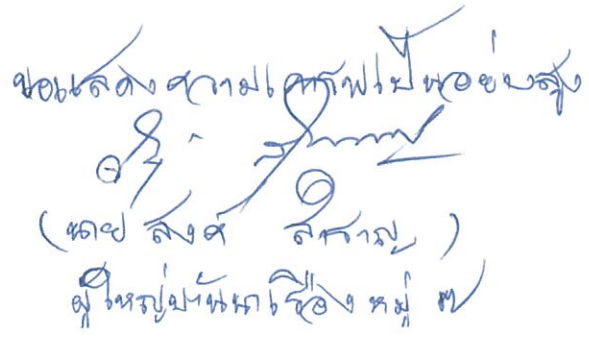 ขอแสดงความเคารพเป็นอย่างสูง
(นาย สงค์ สำราญ)
ผู้ใหญ่บ้านนาเรือง หมู่ ๗